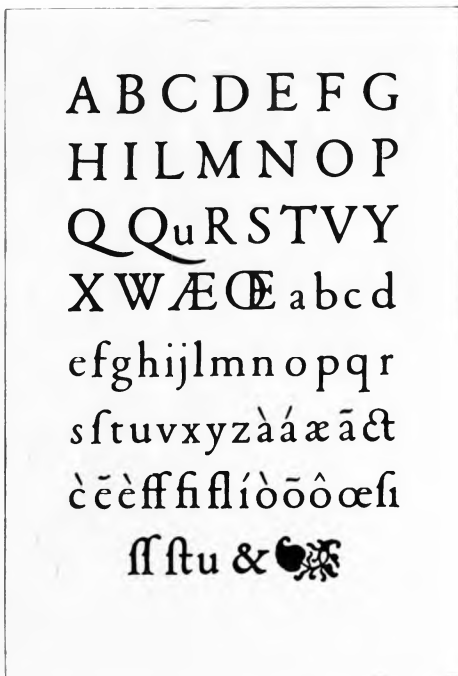 A B C D E F G
H I L M N O P
Q Qu R S T V Y
X W Æ Œ a b c d
e f g h i j l m n o p q r
s ſ t u v x y z à á æ ã ct
c̀ ẽ è ff fi fl í ò õ ô œ ſi
ſſ ſt u & ❧